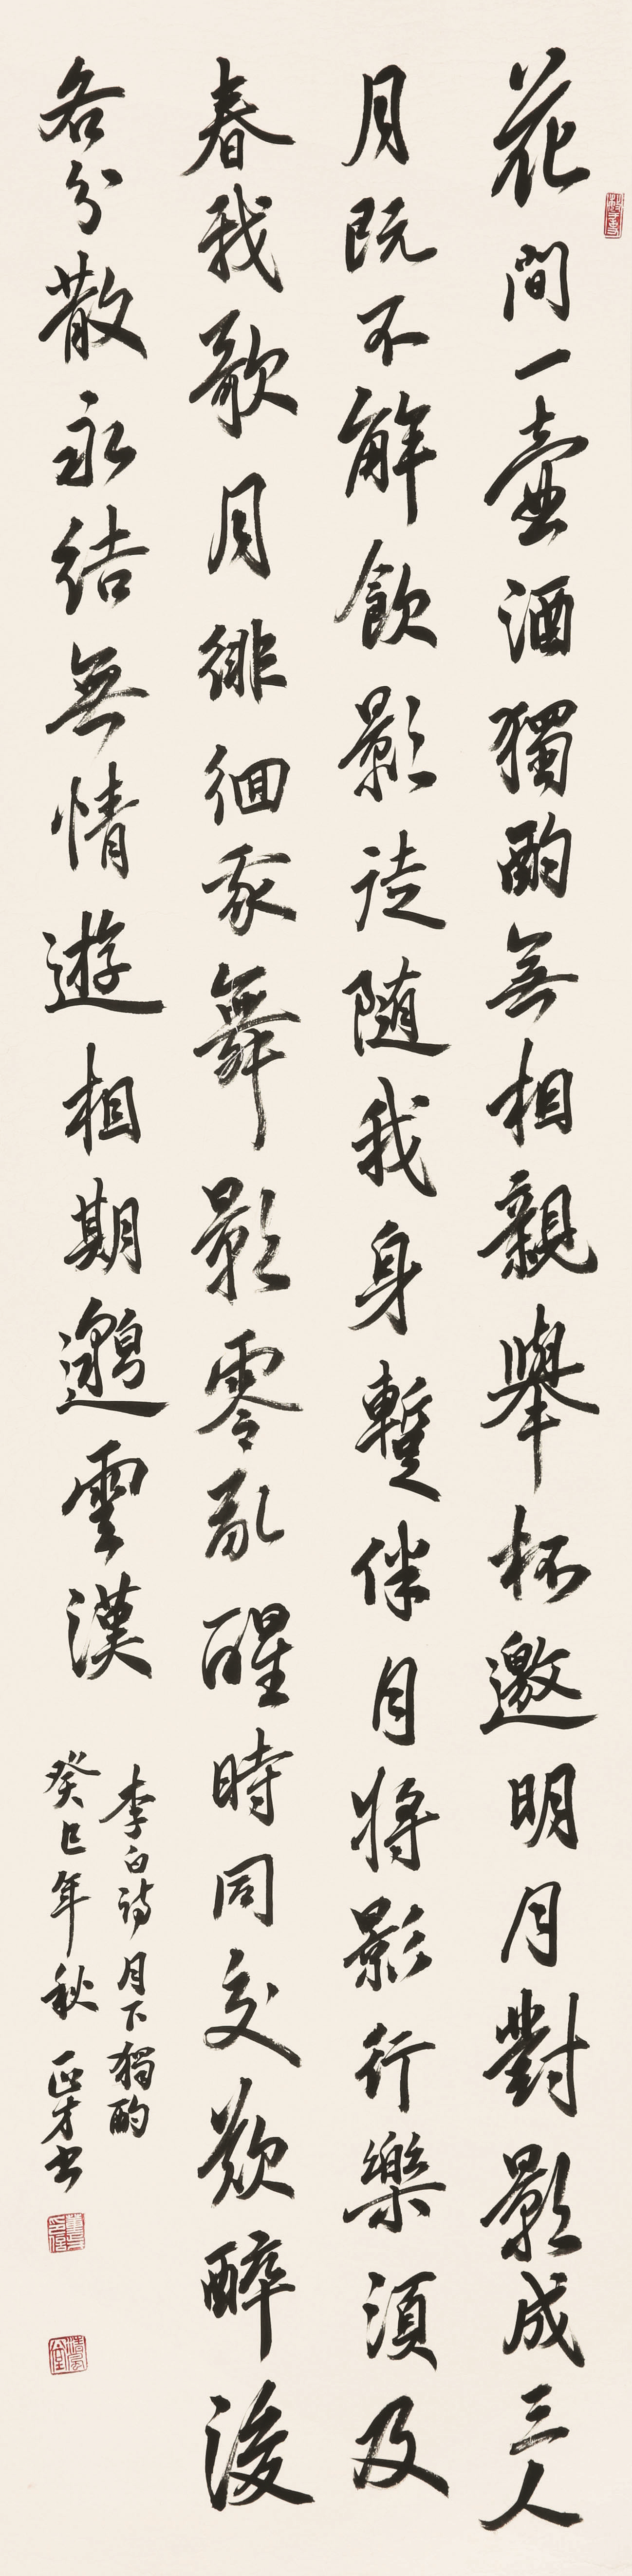 花間一壺酒獨酌無相親舉杯邀明月對影成三人
月既不解飲影徒隨我身暫伴月將影行樂須及
春我歌月徘徊我舞影零亂醒時同交歡醉後
各分散永結無情遊相期邈雲漢
李白詩月下獨酌
癸巳年秋正才書